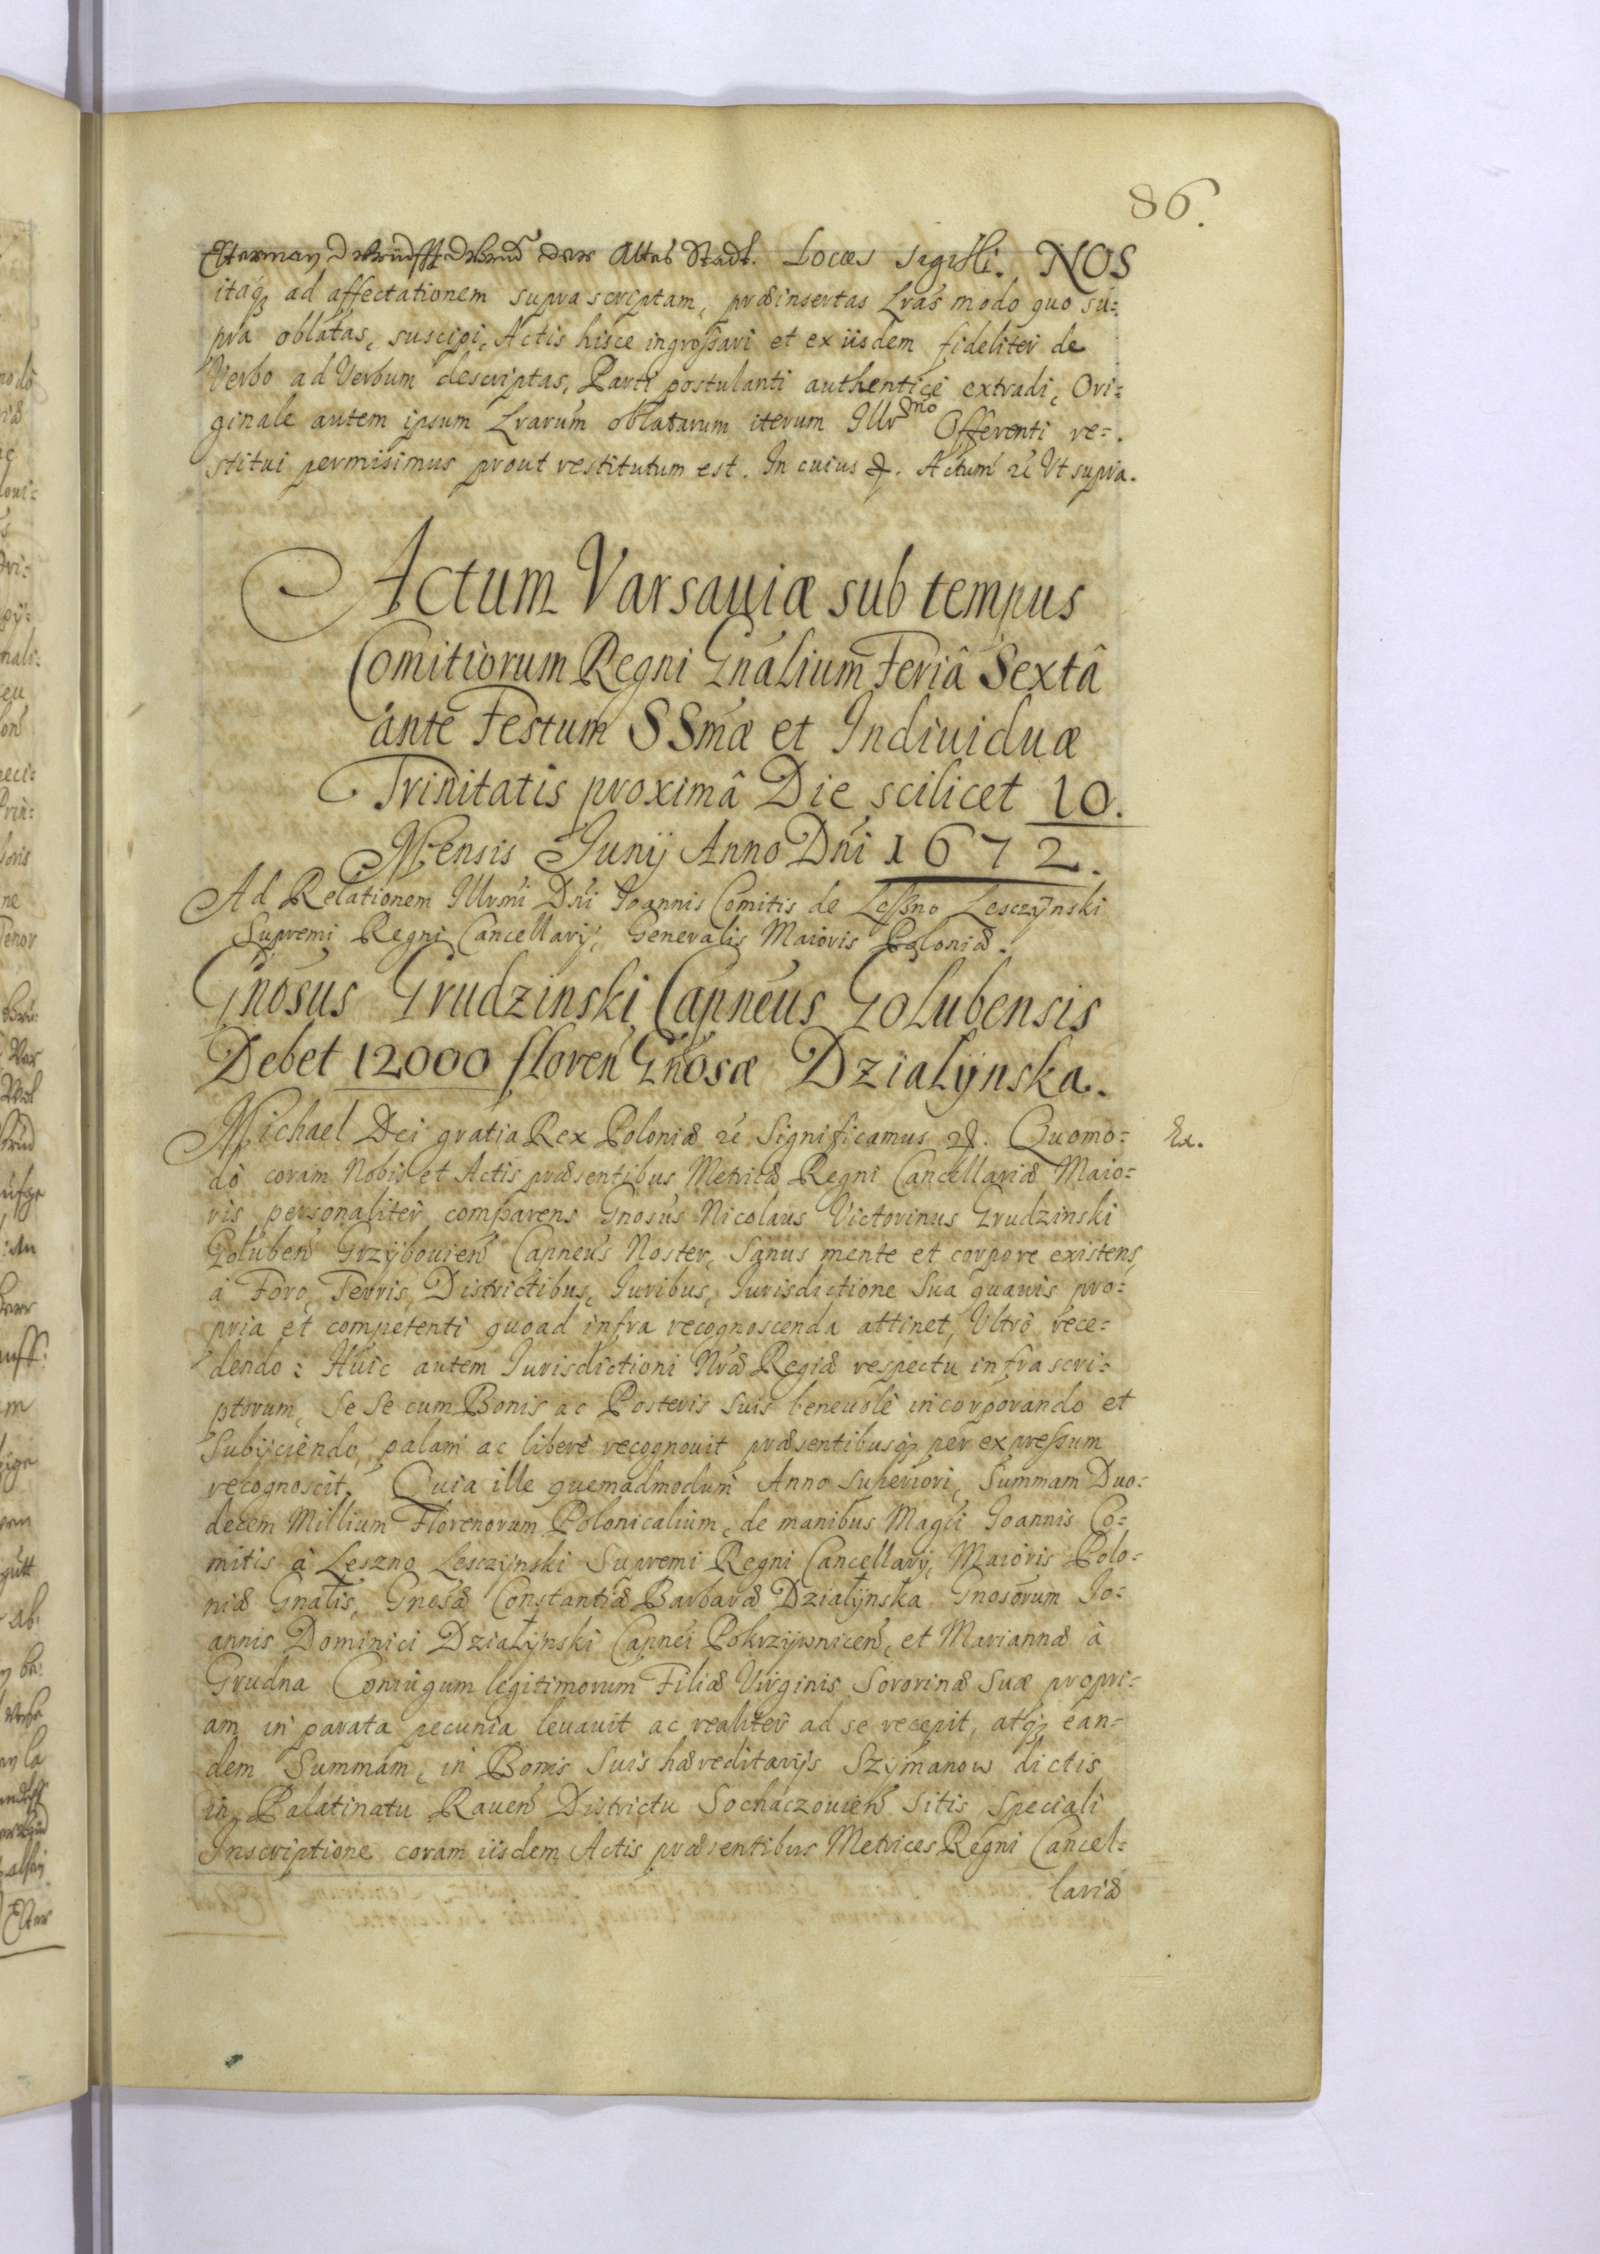 86.
der Altes Stadt. Locus Sigilli. NOS
itaq; ad affectationem suprascriptam, præinsertas Lras modo quo su=
pra oblatas, suscipi, Actis hisce ingrossari et ex iisdem fideliter de
Verbo ad Verbum descriptas, Parti postulanti authenticè extradi, Ori=
ginale autem ipsum Lrarum oblatarum iterum Illrmo Offerenti re=
stitui permisimus prout restitutum est. In cuius &. Actum &c Vt supra.
Actum Varsauiæ sub tempus
Comitiorum Regni Gnalium Feriâ Sextâ
ante Festum SSmæ et Indiuiduæ
Trinitatis proximâ Die scilicet 10.
Mensis Junij Anno Dni 1672.
Ad Relationem Illrmi Dni Joannis Comitis de Leßno Lesczÿnski
Supremi Regni Cancellarij, Generalis Maioris Poloniæ.
Gnosus Grudzinski Capneus Golubensis
Debet 12000 floren Gnosæ Dzialÿnska.
Michael Dei gratia Rex Poloniæ &c Significamus &. Quomo= Ex.
dò coram Nobis et Actis præsentibus Metricæ Regni Cancellariæ Maio=
ris personaliter comparens Gnosus Nicolaus Victorinus Grudzinski
Goluben Grzÿbouien Capneus Noster, Sanus mente et corpore existens,
à Foro, Terris, Districtibus, Juribus, Jurisdictione Sua quauis pro=
pria et competenti quoad infra recognoscenda attinet, Vltrò rece=
dendo: Huic autem Jurisdictioni Nræ Regiæ respectu infrascri=
ptorum, Se Se cum Bonis ac Posteris Suis beneuolè incorporando et
Subijciendo, palam ac liberè recognouit præsentibusq; per expressum
recognoscit. Quia ille quemadmodum Anno Superiori, Summam Duo=
decem Millium Florenorum Polonicalium, de manibus Magci Joannis Co=
mitis à Leszno Lesczÿnski Supremi Regni Cancellarij, Maioris Polo=
niæ Gnalis, Gnosæ Constantiæ Barbaræ Działÿnska Gnosorum Jo=
annis Dominici Działÿnski Capnei Pokrzÿwnicen, et Mariannæ à
Grudna Coniugum legitimorum Filiæ Virginis Sororinæ Suæ propri=
am in parata pecunia leuauit ac realiter ad se recepit, atq; ean=
dem Summam, in Bonis Suis hæreditarijs Szÿmanow dictis
in Palatinatu Rauen Districtu Sochaczouien Sitis Speciali
Inscriptione coram iisdem Actis præsentibus Metrices Regni Cancel=
lariæ